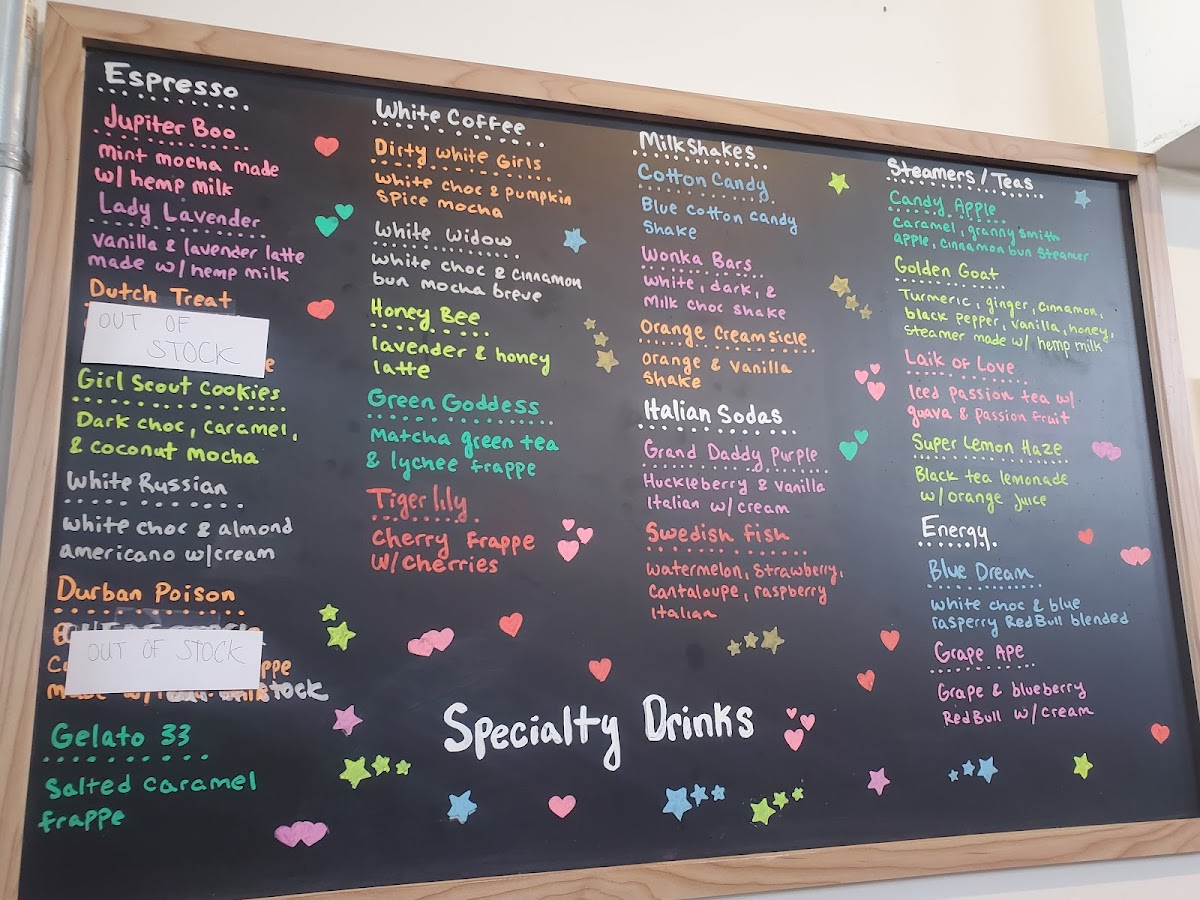 Espresso
Jupiter Boo
mint mocha made
w/ hemp milk
Lady Lavender
vanilla & lavender latte
made w/ hemp milk
Dutch Treat
OUT OF
STOCK
Girl Scout Cookies
Dark choc, caramel,
& coconut mocha
White Russian
white choc & almond
americano w/cream
Durban Poison
OUT OF STOCK
Gelato 33
Salted caramel
frappe
White Coffee
Dirty White Girls
white choc & pumpkin
spice mocha
White Widow
white choc & cinnamon
bun mocha breve
Honey Bee
lavender & honey
latte
Green Goddess
Matcha green tea
& lychee frappe
Tiger lily
Cherry frappe
w/cherries
Milkshakes
Cotton Candy
Blue cotton candy
Shake
Wonka Bars
white, dark, &
Milk choc shake
Orange Creamsicle
orange & vanilla
Shake
Italian Sodas
Grand Daddy Purple
Huckleberry & vanilla
Italian w/cream
Swedish fish
watermelon, strawberry,
cantaloupe, raspberry
Italian
Steamers/Teas
Candy Apple
Caramel, granny smith
apple, cinnamon bun steamer
Golden Goat
Turmeric, ginger, cinnamon,
black pepper, vanilla, honey,
steamer made w/ hemp milk
Laik of Love
Iced passion tea w/
guava & passion fruit
Super Lemon Haze
Black tea lemonade
w/orange juice
Energy
Blue Dream
white choc & blue
rasperry RedBull blended
Grape Ape
Grape & blueberry
RedBull w/cream
Specialty Drinks